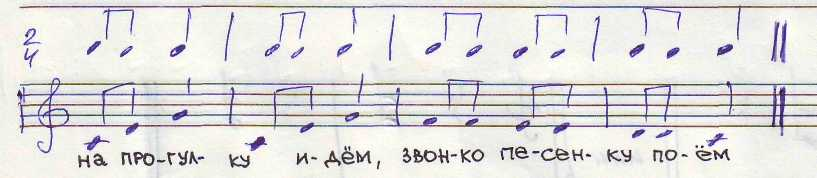 2/4
на про-гул- ку и-дём, звон-ко пе-сен- ку по-ём